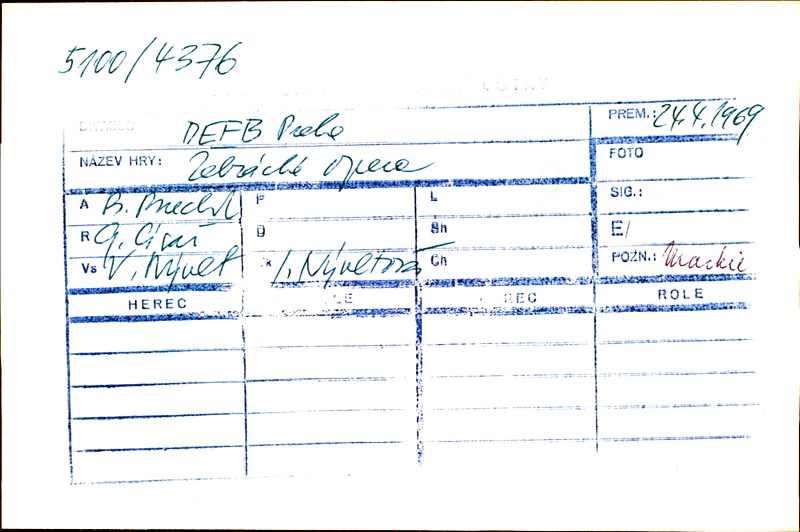 5100/4376
DIVADLO DEFB Praha PREM.: 24.4.1969
NÁZEV HRY: Žebrácká opera FOTO
A B. Brecht P L SIG.:
R G. Císař Sh E/
Vs V. Nývlt I. Nývltová Ch POZN.: Mackie
HEREC REC ROLE